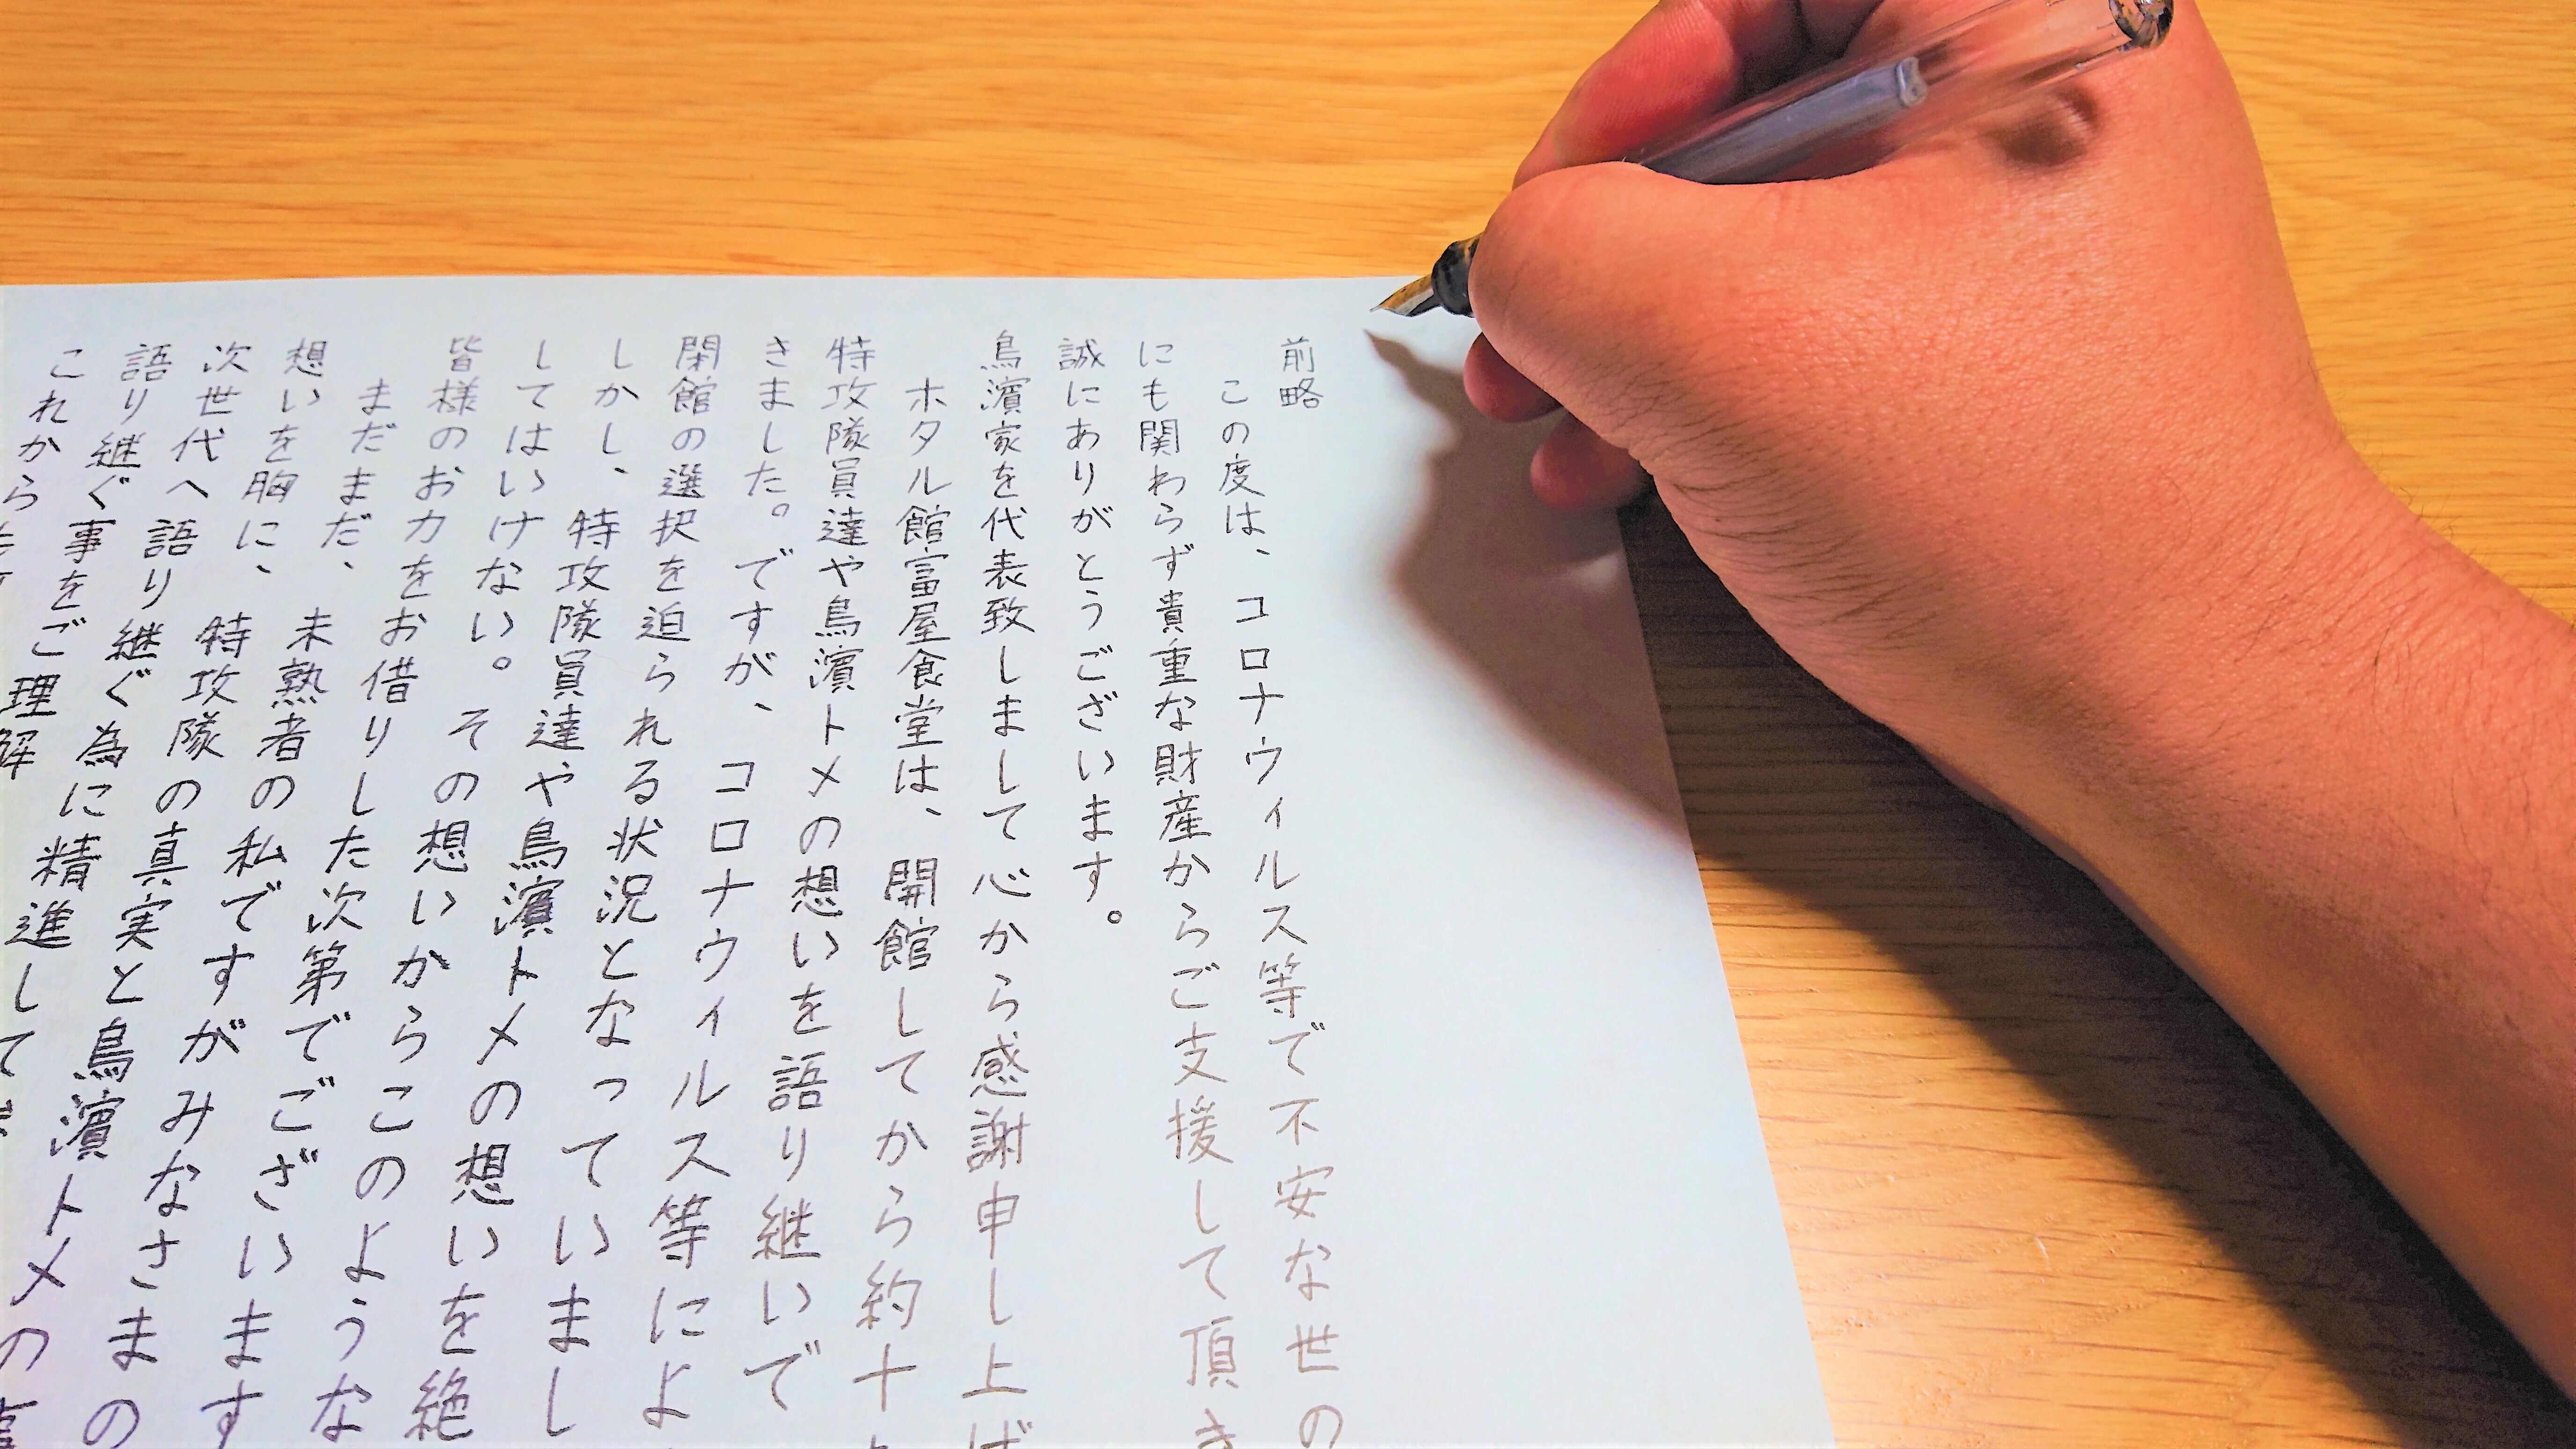 前略
この度は、コロナウィルス等で不安な世の
にも関わらず貴重な財産からご支援して頂き
誠にありがとうございます。
鳥濱家を代表致しまして心から感謝申し上げ
ホタル館富屋食堂は、開館してから約十
特攻隊員達や鳥濱トメの想いを語り継いで
きました。ですが、コロナウィルス等によ
閉館の選択を迫られる状況となっていまし
しかし、特攻隊員達や鳥濱トメの想いを絶
してはいけない。その想いからこのような
皆様のお力をお借りした次第でございます
まだまだ、未熟者の私ですがみなさまの
想いを胸に、特攻隊の真実と鳥濱トメの
次世代へ語り継ぐ為に精進して
語り継ぐ事をご理解
これから